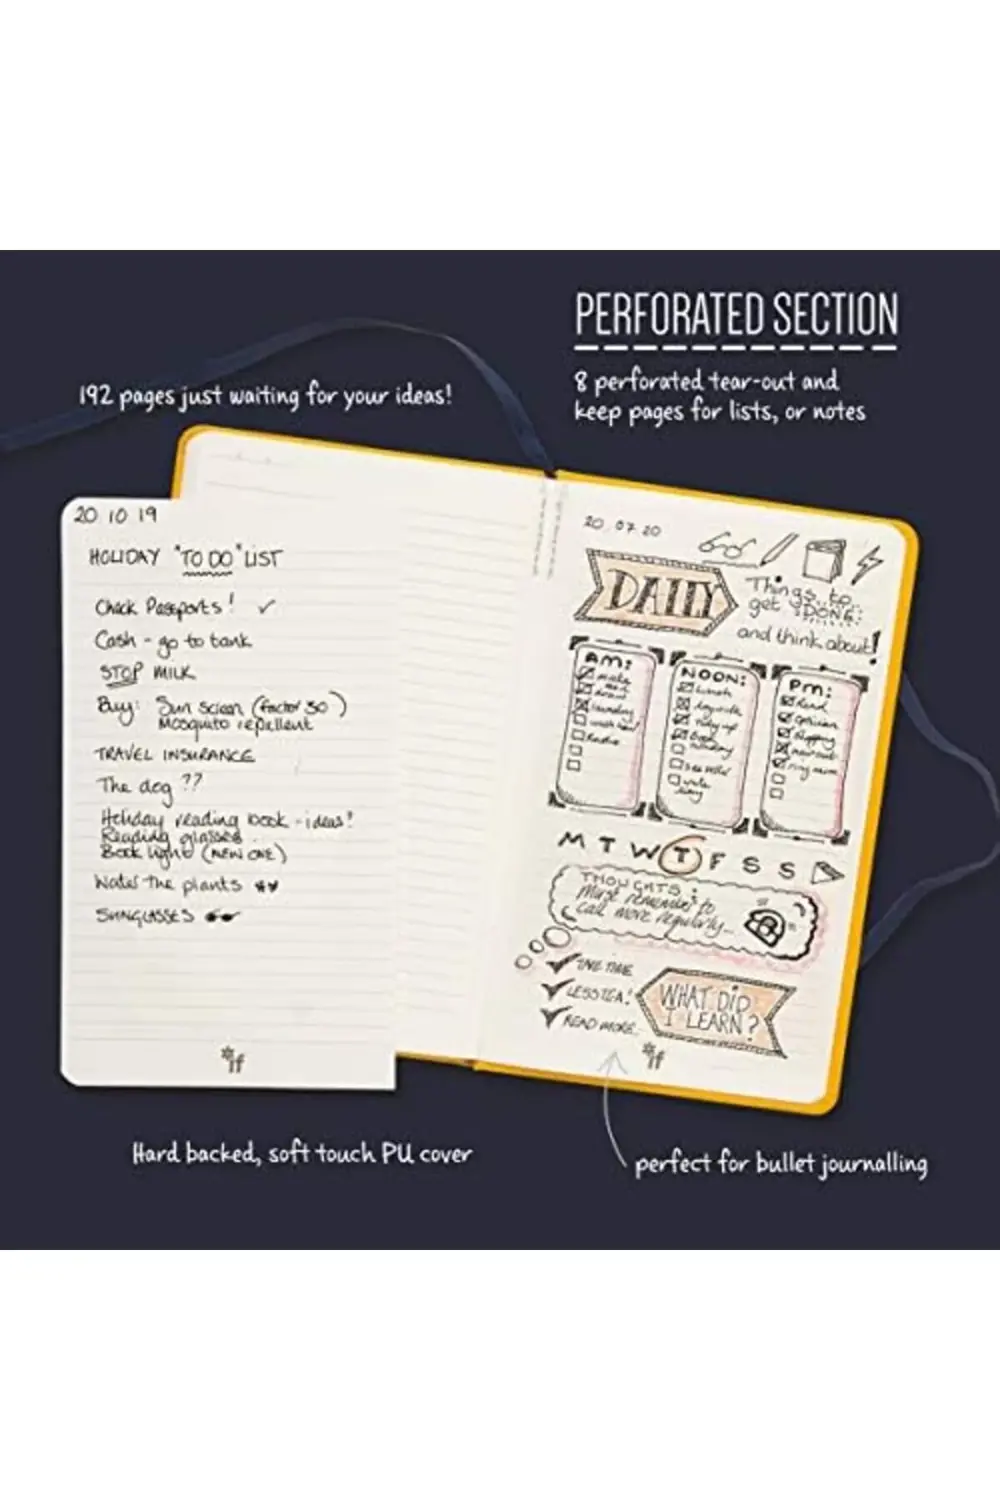 PERFORATED SECTION
8 perforated tear-out and
keep pages for lists, or notes
192 pages just waiting for your ideas!
20 10 19
HOLIDAY "TO DO" LIST
Check Passports! ✓
Cash - go to bank
STOP MILK
Buy: Sun Screen (factor 30)
Mosquito repellent
TRAVEL INSURANCE
The dog ??
Holiday reading book - ideas!
Reading glasses
Book light (NEW ONE)
Water the plants
SUNGLASSES
*if
20 07 20
DAILY
Things to
get DONE:
and think about!
AM:
make
laundry
Radio
NOON:
Lunch
tidy up
Book
holiday
PM:
Read
Optician
Shopping
ring mum
M T W T F S S
THOUGHTS:
Must remember to
call more regularly...
TAKE TIME
LESS TEA!
READ MORE..
WHAT DID
I LEARN?
*if
Hard backed, soft touch PU cover
perfect for bullet journalling